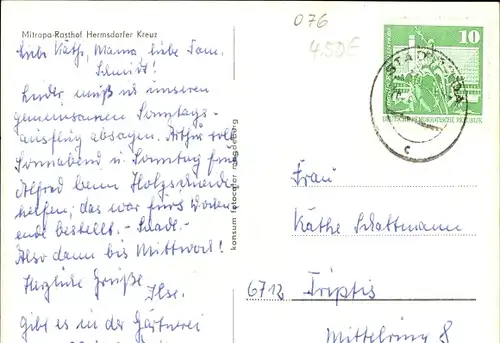 Mitropa-Rasthof Hermsdorfer Kreuz
Liebe Käthe, Mama liebe Fam.
Schmidt!
Leider muß ich unseren
gemeinsamen Sonntags-
ausflug absagen. Arthur
Sonnabend u. Sonntag
Alfred beim Holz
helfen, das war fürs Wochen
ende bestellt. - Schade. -
Also dann bis Mittwoch!
Herzliche Grüße
Ilse.
Gibt es in der Gärtnerei
konsum fotocolor magdeburg
076
4.50 €
10
STADTRODA
DEUTSCHE DEMOKRATISCHE REPUBLIK
c
Frau
Käthe Schattmann
6712 Triptis
Mittelring 8